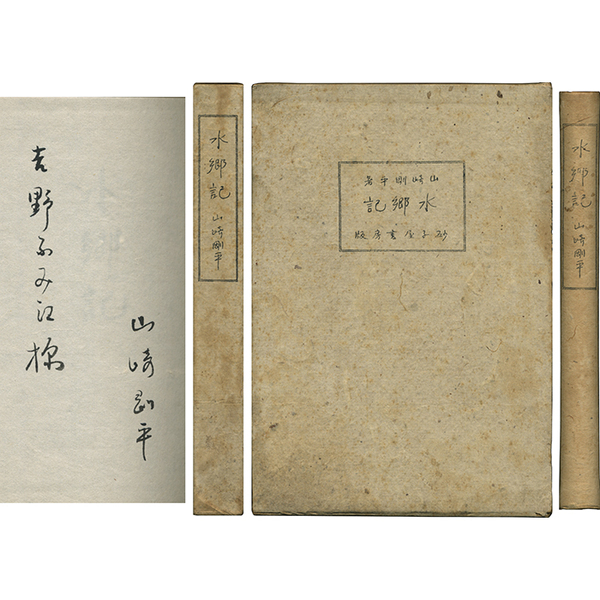 吉野ふみ江様
山崎剛平
水郷記 山崎剛平
山崎剛平著
水郷記
砂子屋書房版
水郷記 山崎剛平